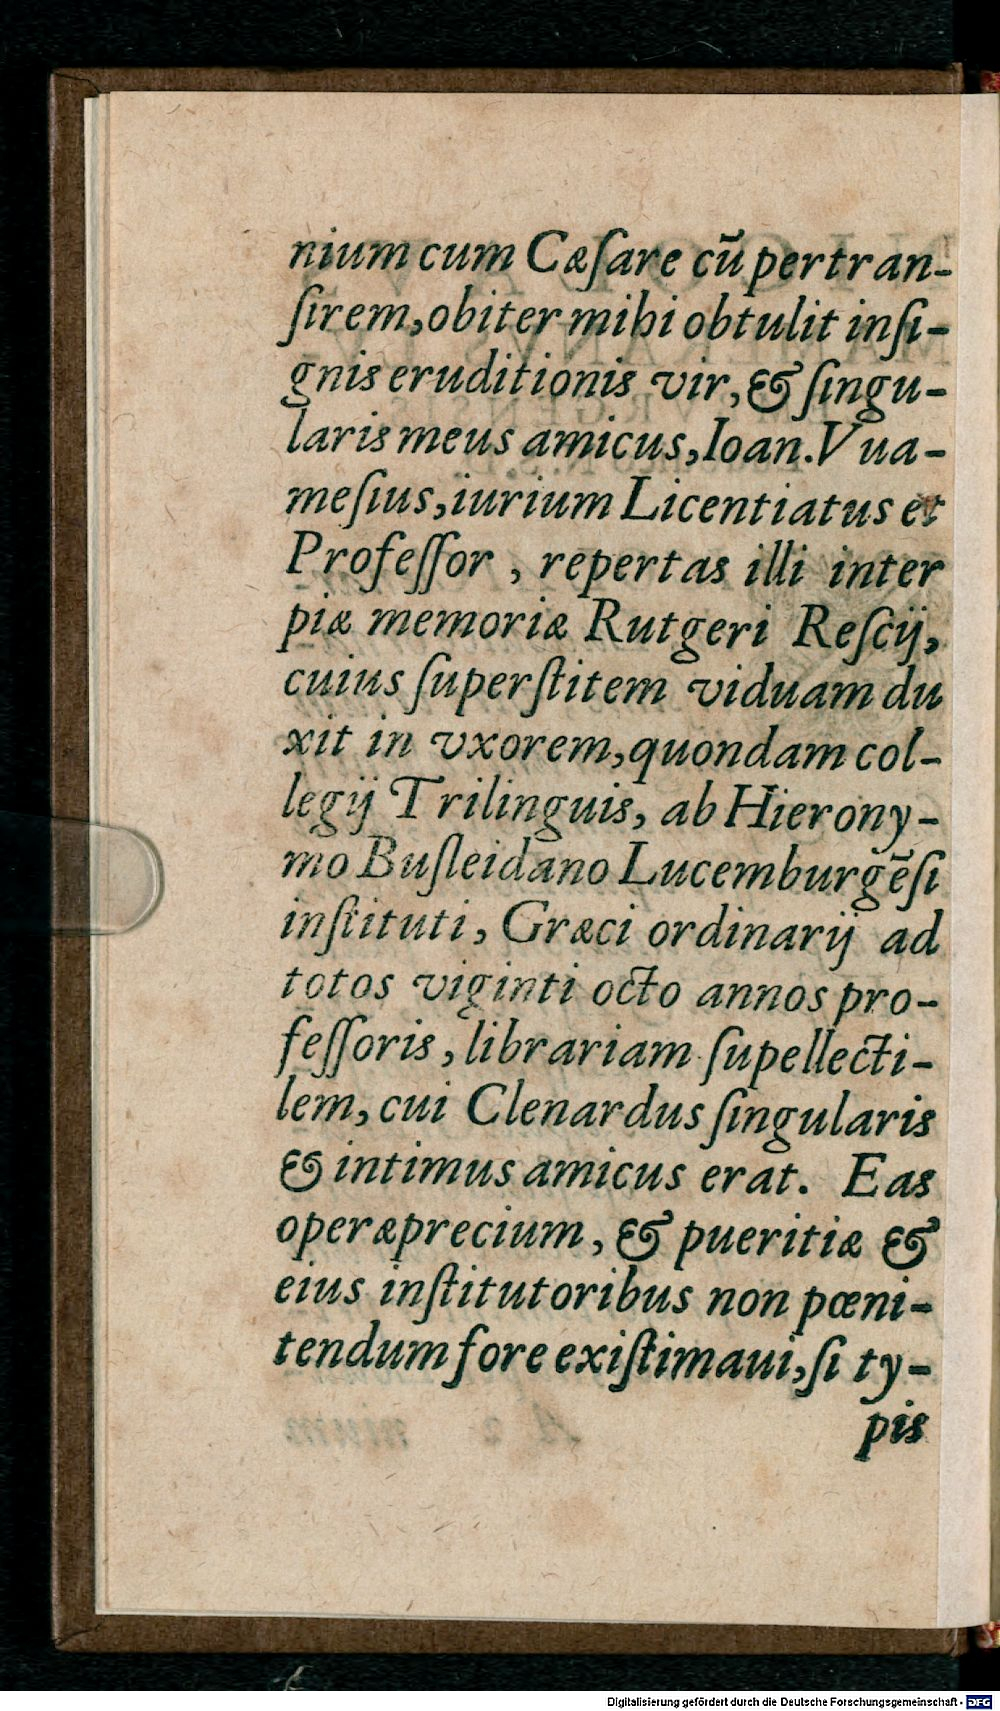 nium cum Cæſare cū pertran-
ſirem, obiter mihi obtulit inſi-
gnis eruditionis vir, & ſingu-
laris meus amicus, Ioan. Vua-
meſius, iurium Licentiatus et
Profeſſor , repertas illi inter
piæ memoriæ Rutgeri Reſcij,
cuius ſuperſtitem viduam du
xit in vxorem, quondam col-
legij Trilinguis, ab Hierony-
mo Buſleidano Lucemburgēſi
inſtituti , Græci ordinarij ad
totos viginti octo annos pro-
feſſoris , librariam ſupellecti-
lem, cui Clenardus ſingularis
& intimus amicus erat. Eas
operæprecium , & pueritiæ &
eius inſtitutoribus non pœni-
tendum fore exiſtimaui, ſi ty-
pis
Digitalisierung gefördert durch die Deutsche Forschungsgemeinschaft - DFG